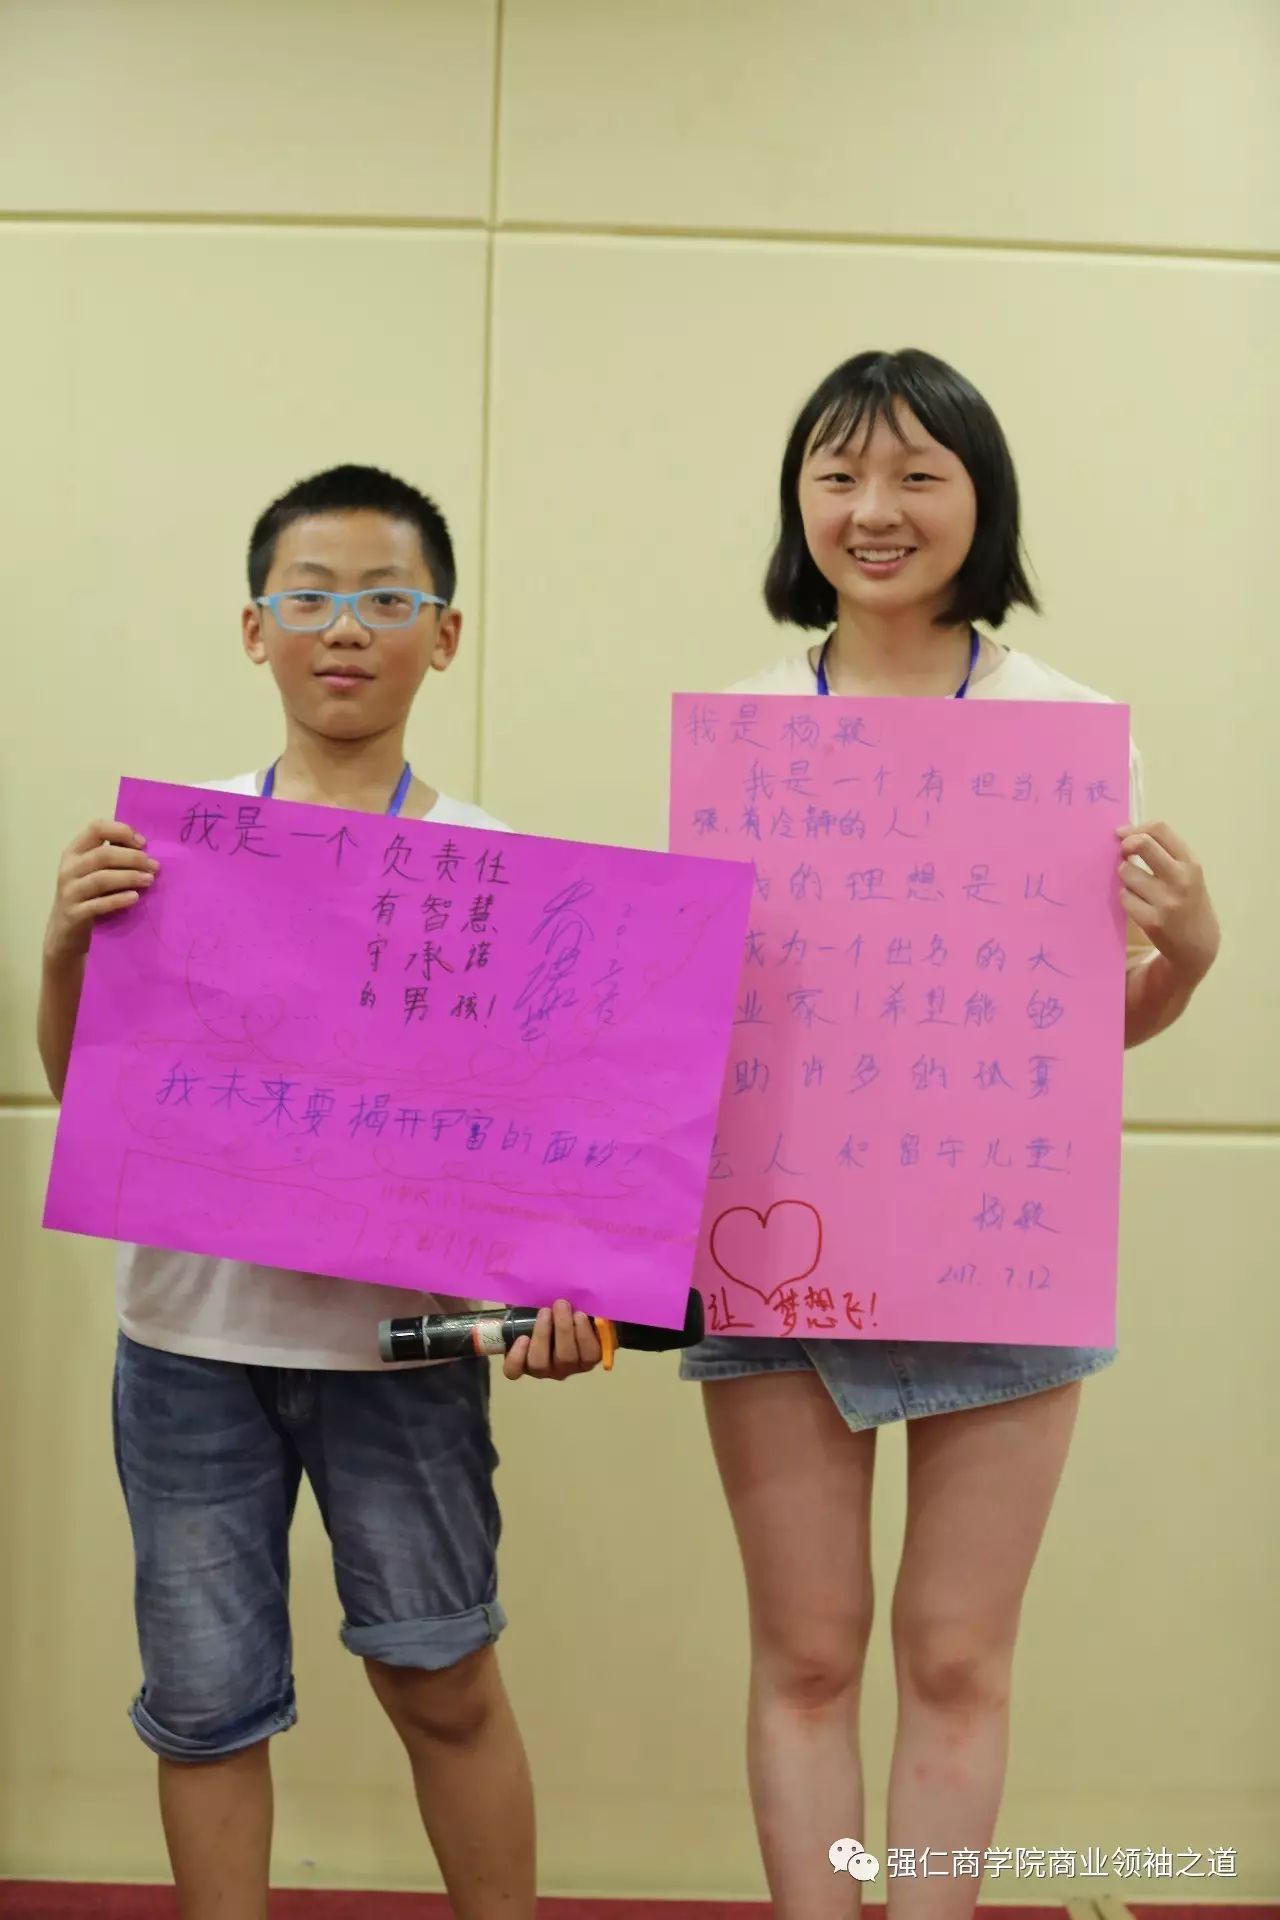 我是一个负责任
有智慧
守承诺
的男孩!
我未来要揭开宇宙的面纱!
我是杨颖
我是一个有担当,有
有冷静的人!
我的理想是以
成为一个出名的大
业家!希望能够
助许多的孤寡
人和留守儿童!
杨颖
2017.7.12
让梦想飞!
强仁商学院商业领袖之道